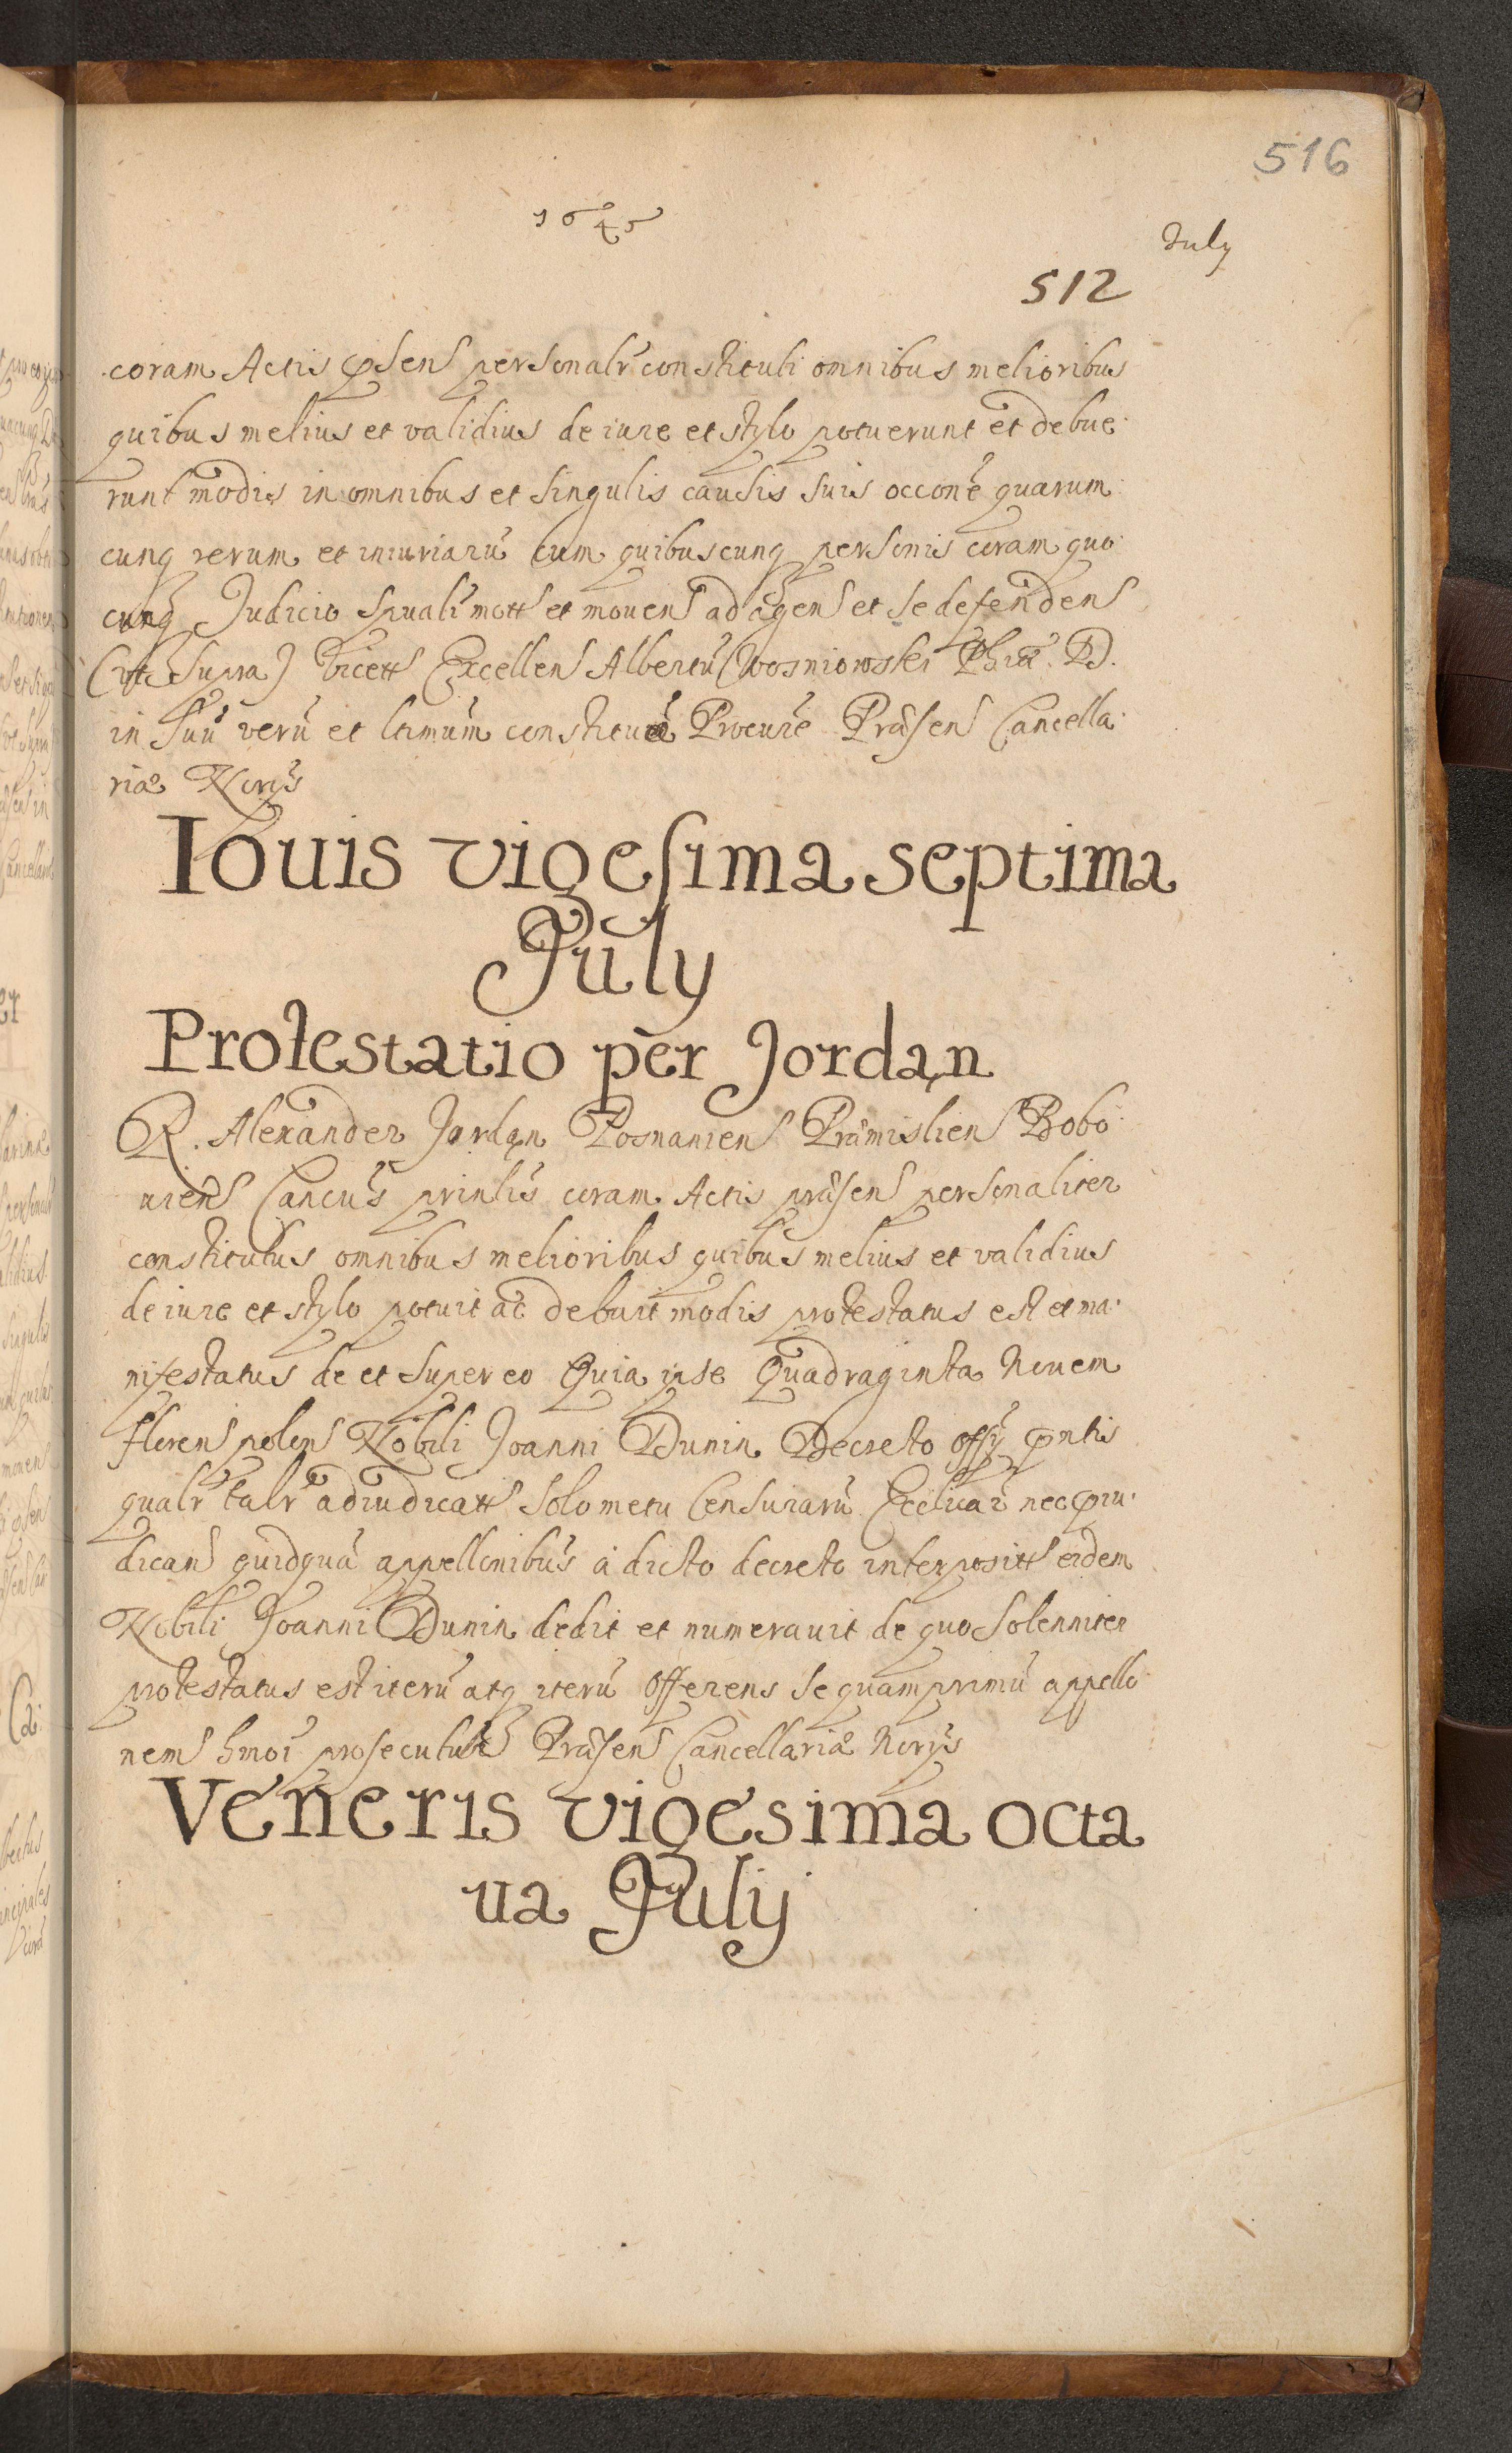 516
1645
July
512
coram Actis pṡens personalr̃ constituti omnibus melioribus
quibus melius et validius de iure et stylo potuerunt et debue
runt modis in omnibus et singulis causis suis occone quarum
cunq rerum et iniuriarū cum quibuscunq personis coram quo
cunq Judicio spuali mott et mouen ad agen et se defenden
(ut supra) Excellen Albertū Wosniowski Phiæ D.
in suū verū et ltimum constituē Procurē Præsen Cancella
riæ Norys
Iouis vigesima septima
July
Protestatio per Jordan
R. Alexander Jordan Posnanien Præmislien Bobo
uien Cancus prinlis coram Actis præsen personaliter
constitutus omnibus melioribus quibus melius et validius
de iure et stylo potuit ac debuit modis protestatus est et ma
nifestatus de et super eo Quia ipse Quadraginta Nouem
floren polon Nobili Joanni Dunin Decreto offy pntis
qualr talr adiudicatt solo metu Censurarū Ecclicar nec priu
dican quidquā appellonibus a dicto decreto interpositt eidem
Nobili Joanni Dunin dedit et numerauit de quo solenniter
protestatus est iterū atq iterū offerens se quamprimū appello
nem hmoi prosecuturū Præsen Cancellariæ Norys
Veneris vigesima octa
ua July